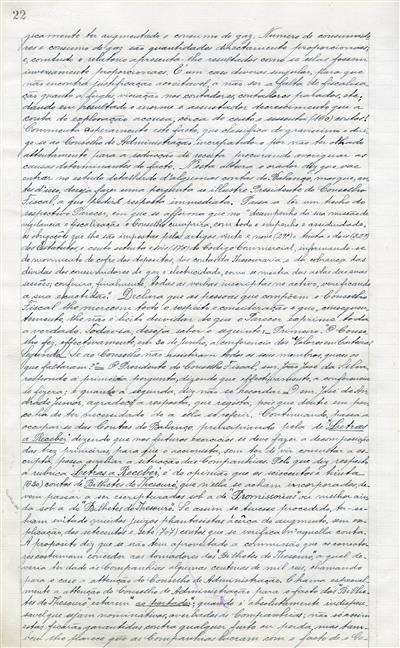 22
gicamente ter augmentado o consumo de gaz. Numero de consumido-
res e consumo de gaz são quantidades directamente proporcionaes;
e, comtudo o relatorio apresenta-lhe resultados como se ellas fossem
inversamente proporcionaes. É um caso deveras singular, para que
não encontra justificação acceitavel, a não ser a falta de fiscalisa-
ção quanto a fugas, viciação nos contadores, contadores parados, etc.,
dando em resultado o enorme e assustador decrescimento que a
conta de exploração accusa, cerca de cento e sessenta (160) contos!
Commenta asperamente este facto, que classifica de gravissimo e diri-
ge-se ao Conselho de Administração, increpando-o por não ter olhado
attentamente para a reducção de receita procurando averiguar as
causas determinantes do facto. Nesta altura o orador diz que vae
entrar no estudo detalhado d'algumas contas do Balanço, mas que, an-
tes disso, deseja fazer uma pergunta ao illustre Presidente do Conselho
Fiscal, a que pedirá resposta immediata. Passa a ler um trecho do
respectivo Parecer, em que se affirma que no "desempenho da sua missão de
vigilancia e fiscalisação o Conselho cumprira, com todo o empenho e assiduidade,
as obrigações que lhe são impostas pelos artigos vinte e nove (29º)
dos Estatutos e cento setenta e seis (176º) do Codigo Commercial, informando-se
do movimento do cofre, dos depositos, das contas da Thesouraria, e da cobrança das
dividas dos consumidores de gaz e electricidade, como se mostra das actas das suas
sessões; conferira, finalmente, todas as verbas inscriptas no activo, verificando
a sua exactidão". Declara que as pessoas que compõem o Conselho
Fiscal lhe merecem todo o respeito e consideração e que, consequen-
temente, lhe não é licito duvidar de que o Parecer exprime toda
a verdade. Todavia, deseja saber o seguinte: Primeiro: O Conse-
lho fez, effectivamente, em 30 de Junho, a conferencia dos "Valores em Carteira"?
Segundo: Se ao Conselho não assistiram todos os seus membros, quaes os
que faltaram? O Presidente do Conselho Fiscal, Snr. João José da Silva,
responde á primeira pergunta, dizendo que effectivamente, a conferencia
se fizera;
drade Junior, agradece a resposta, que regista, por que dentro em pou-
co ha de ter necessidade de a ella se referir. Continuando, passa a
occupar-se das Contas do Balanço, principiando pela de Letras
a Receber, dizendo que nos futuros balanços se deve fazer a decomposição
das tres primeiras, para que o accionista, sem ter de vir consultar a es-
cripta, possa avaliar a situação das Companhias. Pelo que diz respeito
á rubrica Letras a Receber, é de opinião que os seiscentos e trinta
(630) contos de Bilhetes do Thesouro, que n'ella se acham incorporados, de-
vem passar a ser escripturados sob a de "Promissorias" ou melhor ain-
da sob a de "Bilhetes do Thesouro". Se assim se tivesse procedido, ter-se-
hiam evitado muitos juizos phantasistas ácerca do augmento, sem ex-
plicação, dos setecentos e sete (707) contos que se verifica n'aquella conta.
A proposito diz que se não tem aproveitado a commissão que os correcto-
res costumam conceder aos tomadores dos "Bilhetes do Thesouro" a qual de-
veria ter dado ás Companhias algumas centenas de mil reis, chamando
para o caso a attenção do Conselho de Administração. Chama especial-
mente a attenção do Conselho de Administração para o facto dos "Bilhe-
tes do Thesouro" estarem "ao portador"; quando é absolutamente indispen-
savel que sejam nominativos, averbados ás Companhias, não só porque,
assim, ficarão garantidas contra qualquer furto ou perda, mas tam-
bem